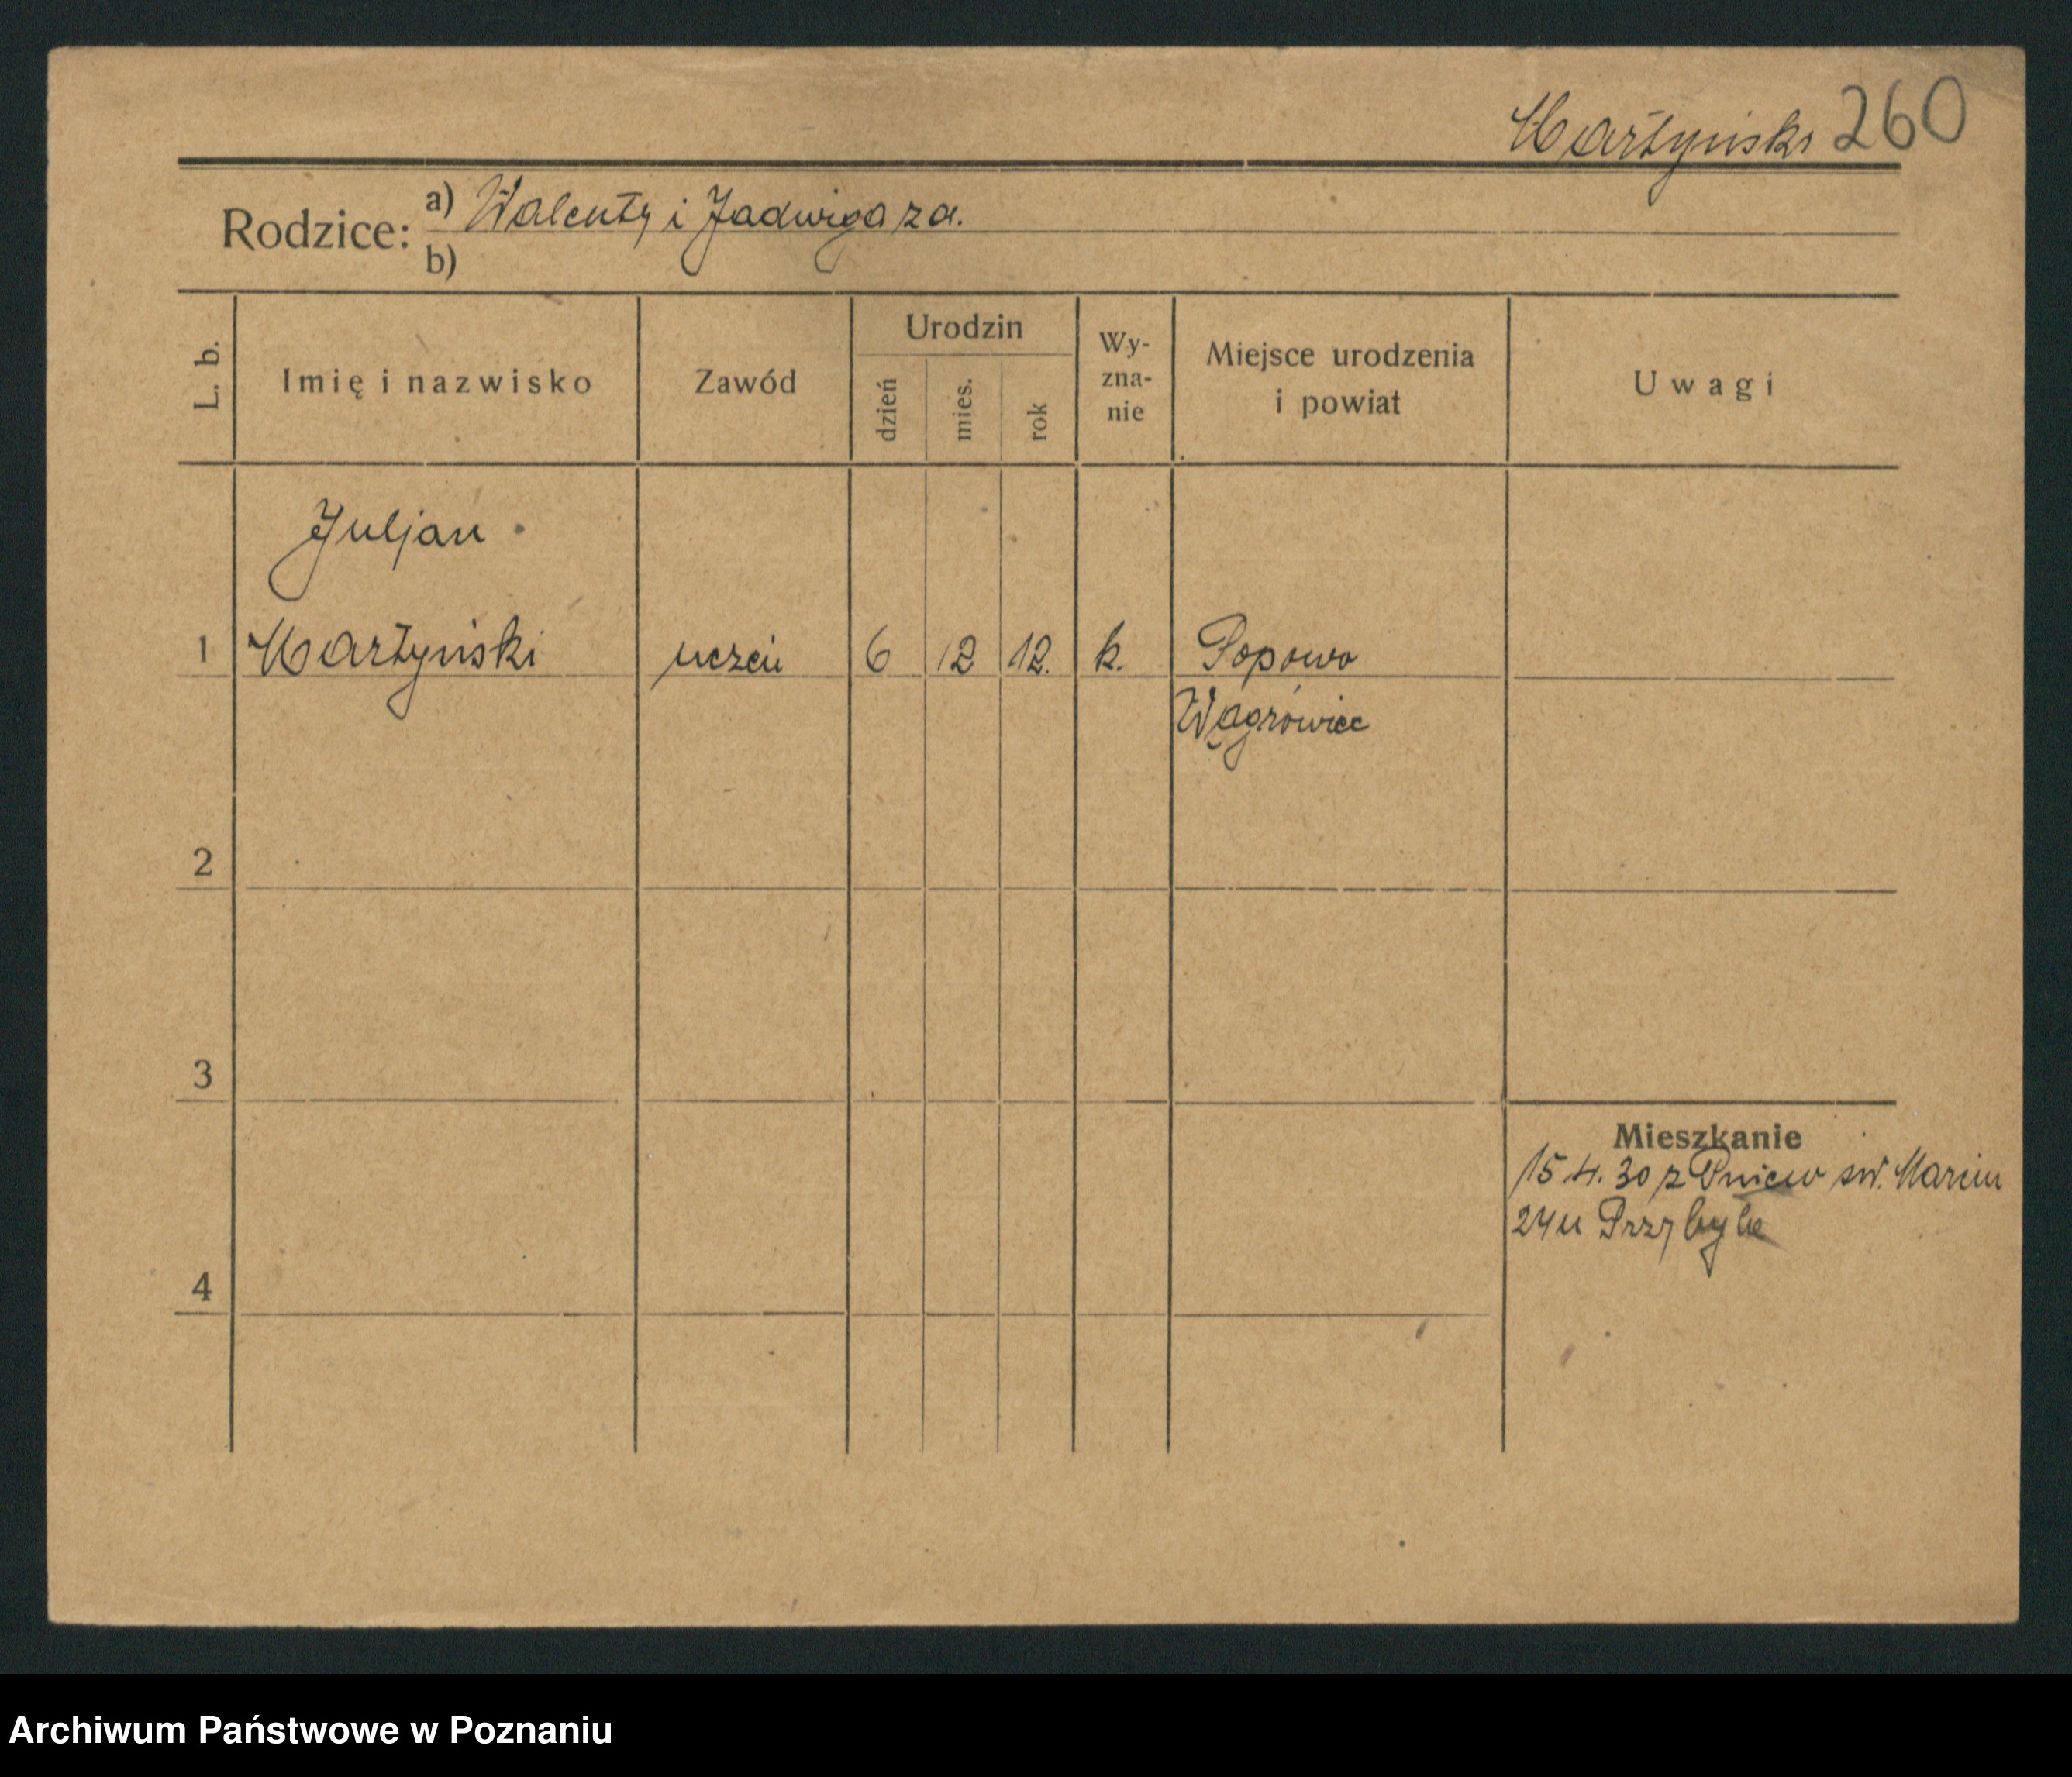 Martyński 260
Rodzice: a) Walenty i Jadwiga za.
b)
L. b. Imię i nazwisko Zawód Urodzin dzień mies. rok Wy-zna-nie Miejsce urodzenia i powiat Uwagi
Juljan
1 Martyński uczeń 6 12 12. k. Popowo
Wągrówiec
2
3
Mieszkanie
15 4. 30 z Pniew św. Marcin
24 u Przybyła
4
Archiwum Państwowe w Poznaniu